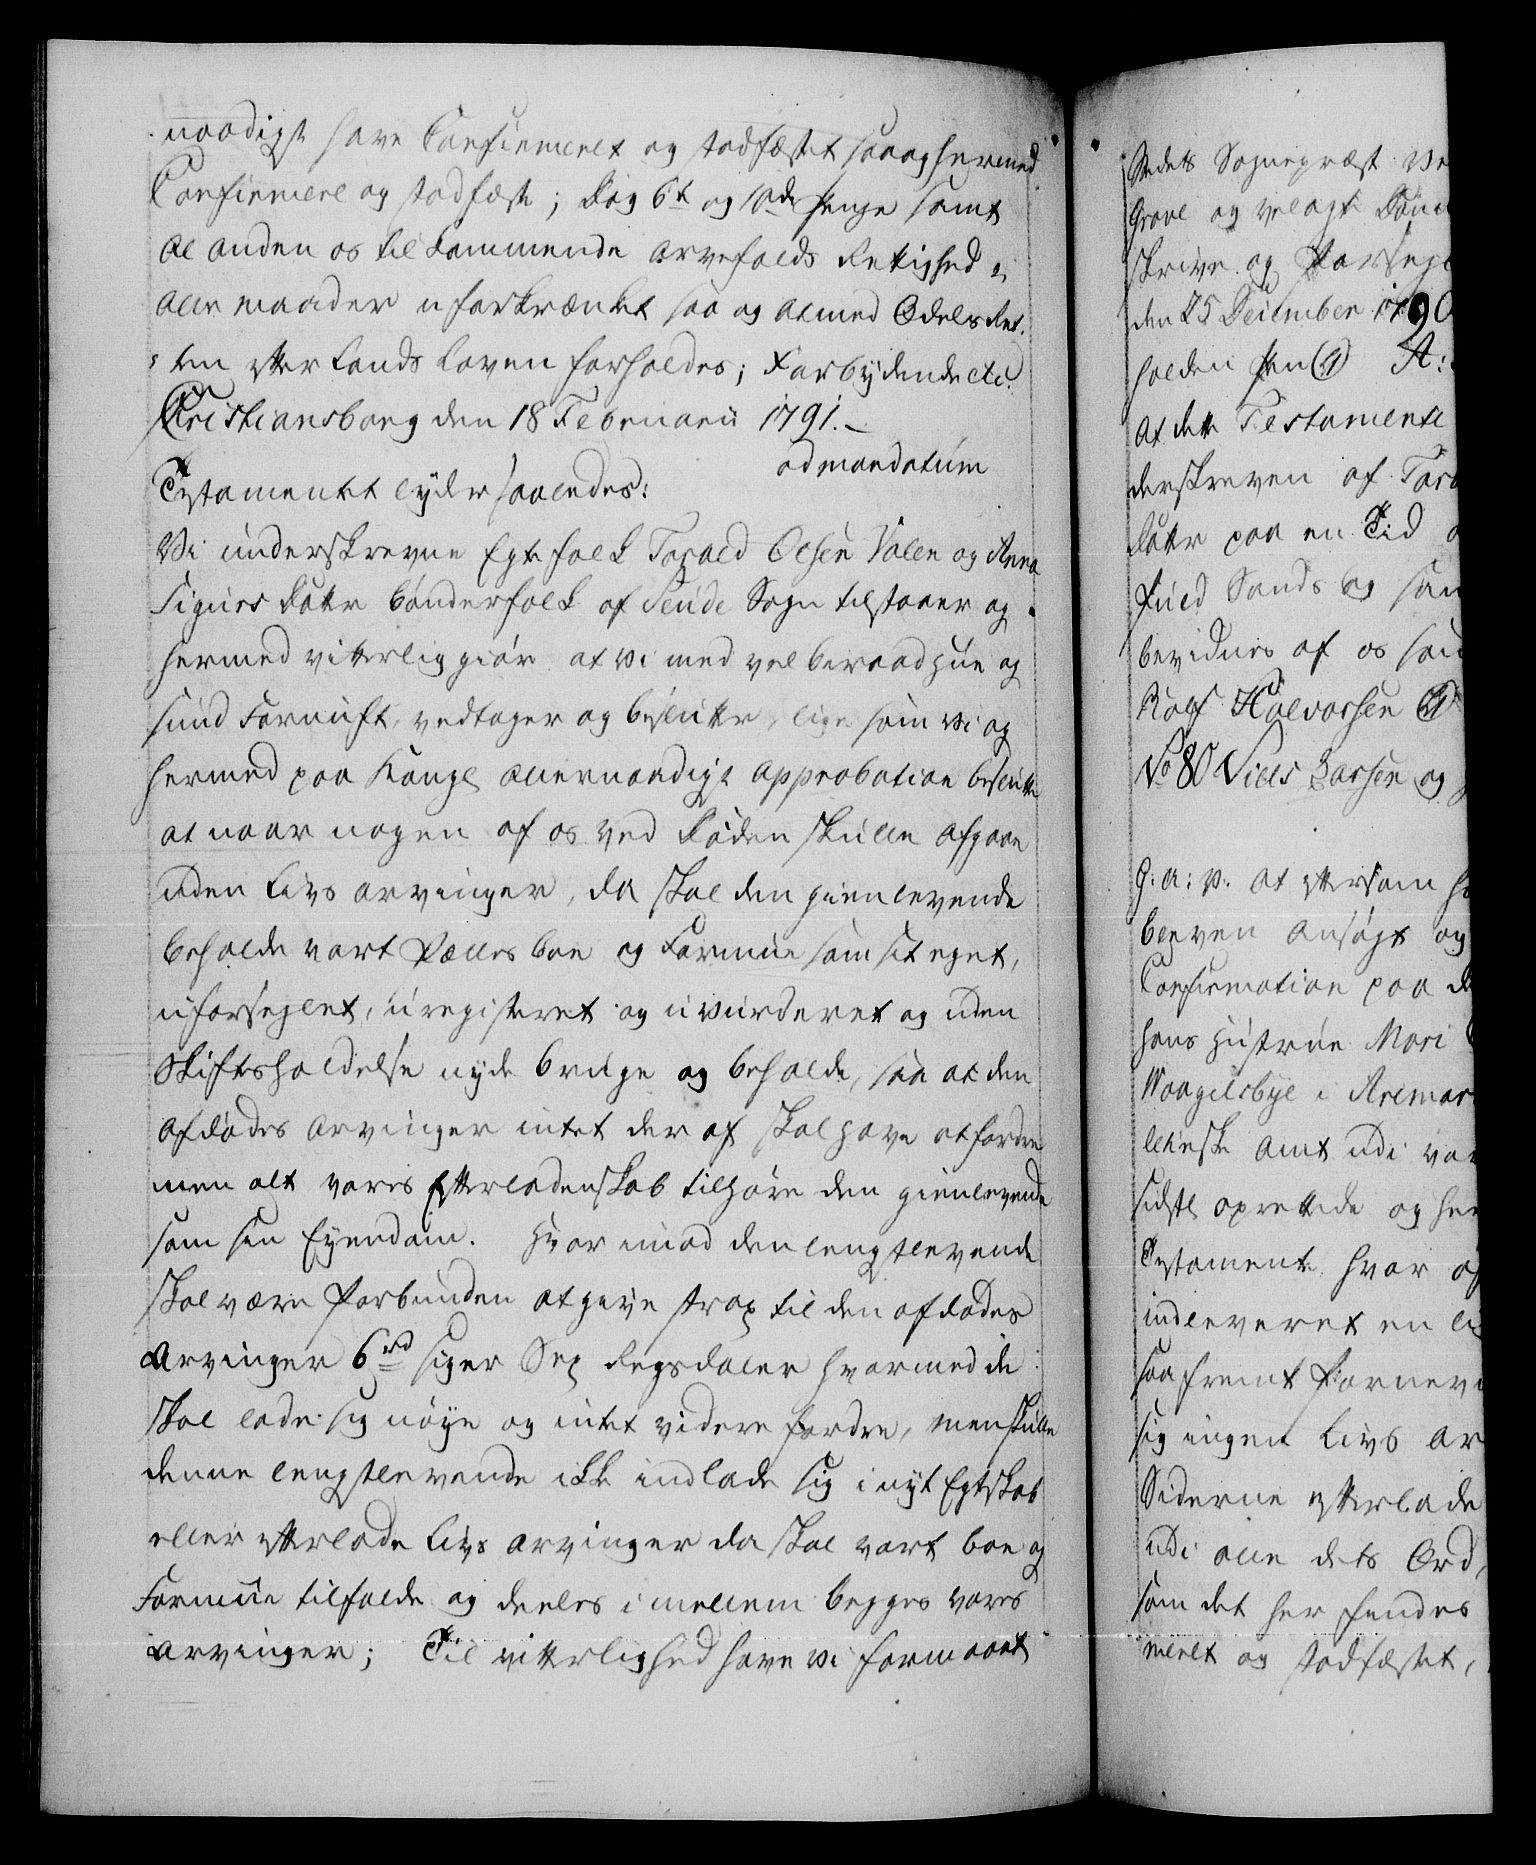 naadigst have Confirmeret og stadfæstet saa og hermed
Confirmere og stadfæste; dog 6te og 10de Penge samt
al anden os tilkommende Arvefalds Rettighed i
alle maader uforkrænket saa og at med Odels Ret,
ten efter Lands Loven forholdes; Forbydende etc.
Christiansborg den 18 Februarii 1791.
ad mandatum
Testamentet lyder saaledes:
Vi underskrevne Egtefolk Torald Olsen Valen og Anna
Sigurs datter bønderfolk af Sende Sogn tilstaaer og
hermed vitterlig giør at vi med vel beraad hue og
sund Fornuft, vedtager og beslutter, lige som vi og
hermed paa Kongl allernaadigst approbation beslutte
at naar nogen af os ved døden skulle afgaae
uden Livs arvinger, da skal den gienlevende
beholde vort Fælles boe og Formue som sit eget,
uforseglet, uregisteret og uvurderet og uden
Skiftsholdelse nyde bruge og beholde, saa at den
afdødes arvinger intet der af skal have at fordre
men alt vores Efterladenskab tilhøre den gienlevende
som sin Eyendom. Hvor imod den lengstlevende
skal være forbunden at give strax til den afdødes
Arvinger 6 rd siger Sex Regsdaler hvormed de
skal lade sig nøye og intet videre fordre, men skulle
denne lengstlevende ikke indlade sig i nyt Egteskab
eller efterlade Livs arvinger da skal vort boe og
Formue tilfalde og deeles imellem begges vores
arvinger; Til vitterlighed have vi formaaet
Stedets Sognepræst
Grove og velagt
skrive og Forsegl
den 25 December 1790
holden Pen A:
at dette Testamente
derskreven af
datter paa en Tid
Sands og
bevidnes af os
Rolf Halvorsen
No 80 Niels Larsen og
G: a: v. at eftersom
bleven ansøgt og
Confirmation paa
hans Hustrue Mari
Waagelsbye i Aremar
lehnske Amt udi
sidste oprettede og
Testamente, hvor
indleveret en
saafremt
sig ingen Livs Ar
Siderne efterlade
udi alle dets Ord,
som det her findes
meret og stadfæstet,